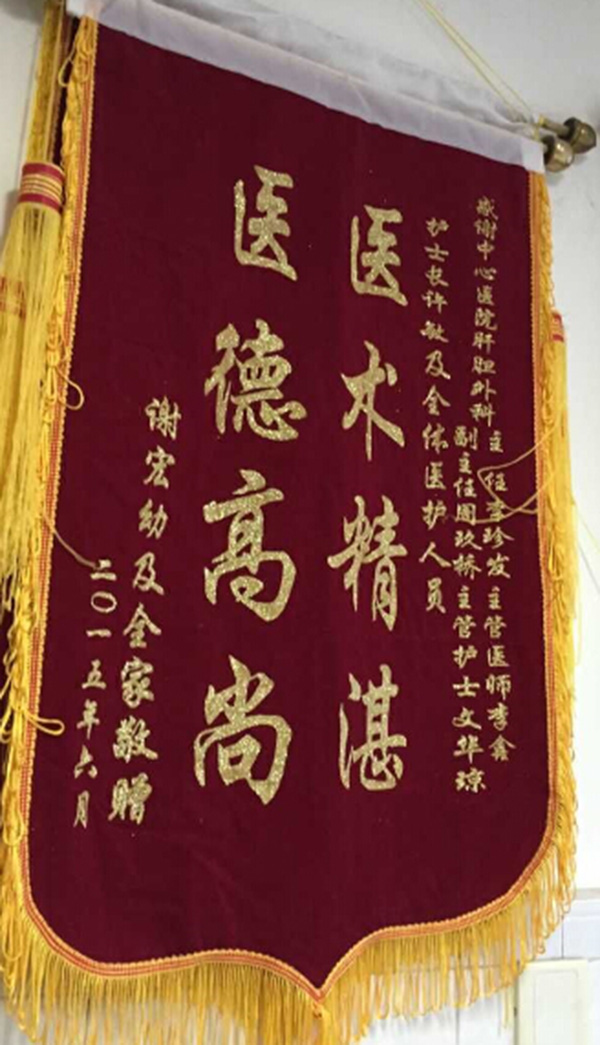 感谢中心医院肝胆外科主任李珍发 主管医师李鑫
副主任周玖桥主管护士文华琼
护士长许敏及全体医护人员
医术精湛
医德高尚
谢宏幼及全家敬赠
二〇一五年六月